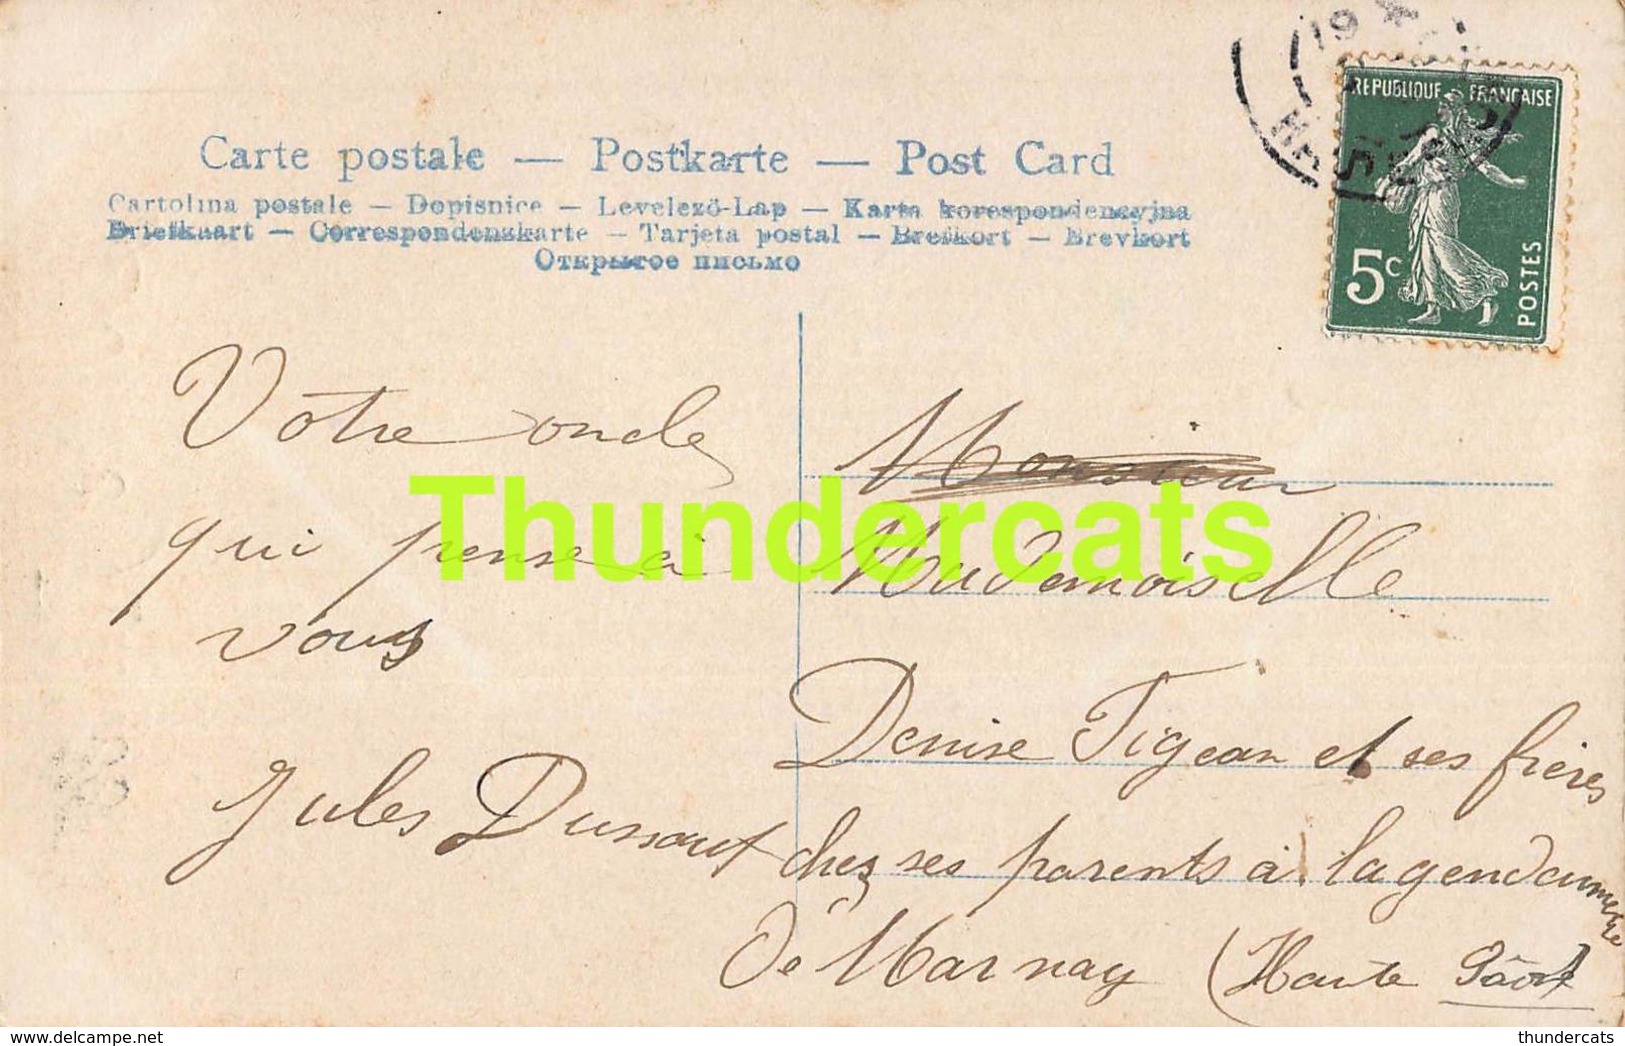 Carte postale — Postkarte — Post Card
Cartolina postale — Dopisnice — Levelező-Lap — Karta korespondencyjna
Briefkaart — Correspondenzkarte — Tarjeta postal — Brefkort — Brevkort
Открытое письмо
REPUBLIQUE FRANÇAISE
5c
POSTES
Votre oncle
qui pense à
vous
Jules Dussaut
Monsieur
Mademoiselle
Denise Tigean et ses frères
chez ses parents à la gendarmerie
de Marnay (Haute
Thundercats
thundercats